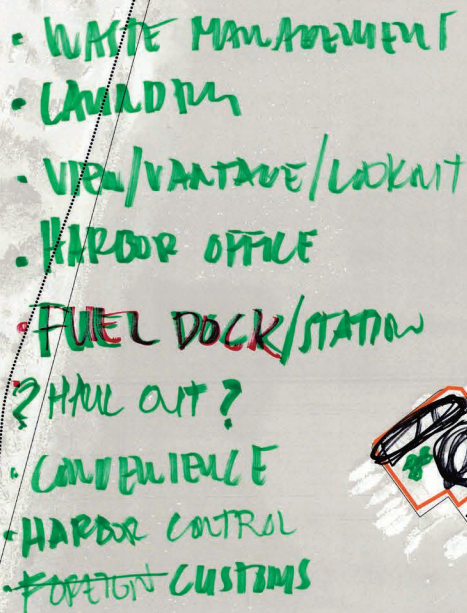 • WASTE MANAGEMENT
• LAUNDRY
• VIEW/VANTAGE/LOOKOUT
• HARBOR OFFICE
• FUEL DOCK/STATION
? HAUL OUT ?
• CONVENIENCE
• HARBOR CONTROL
• FOREIGN CUSTOMS